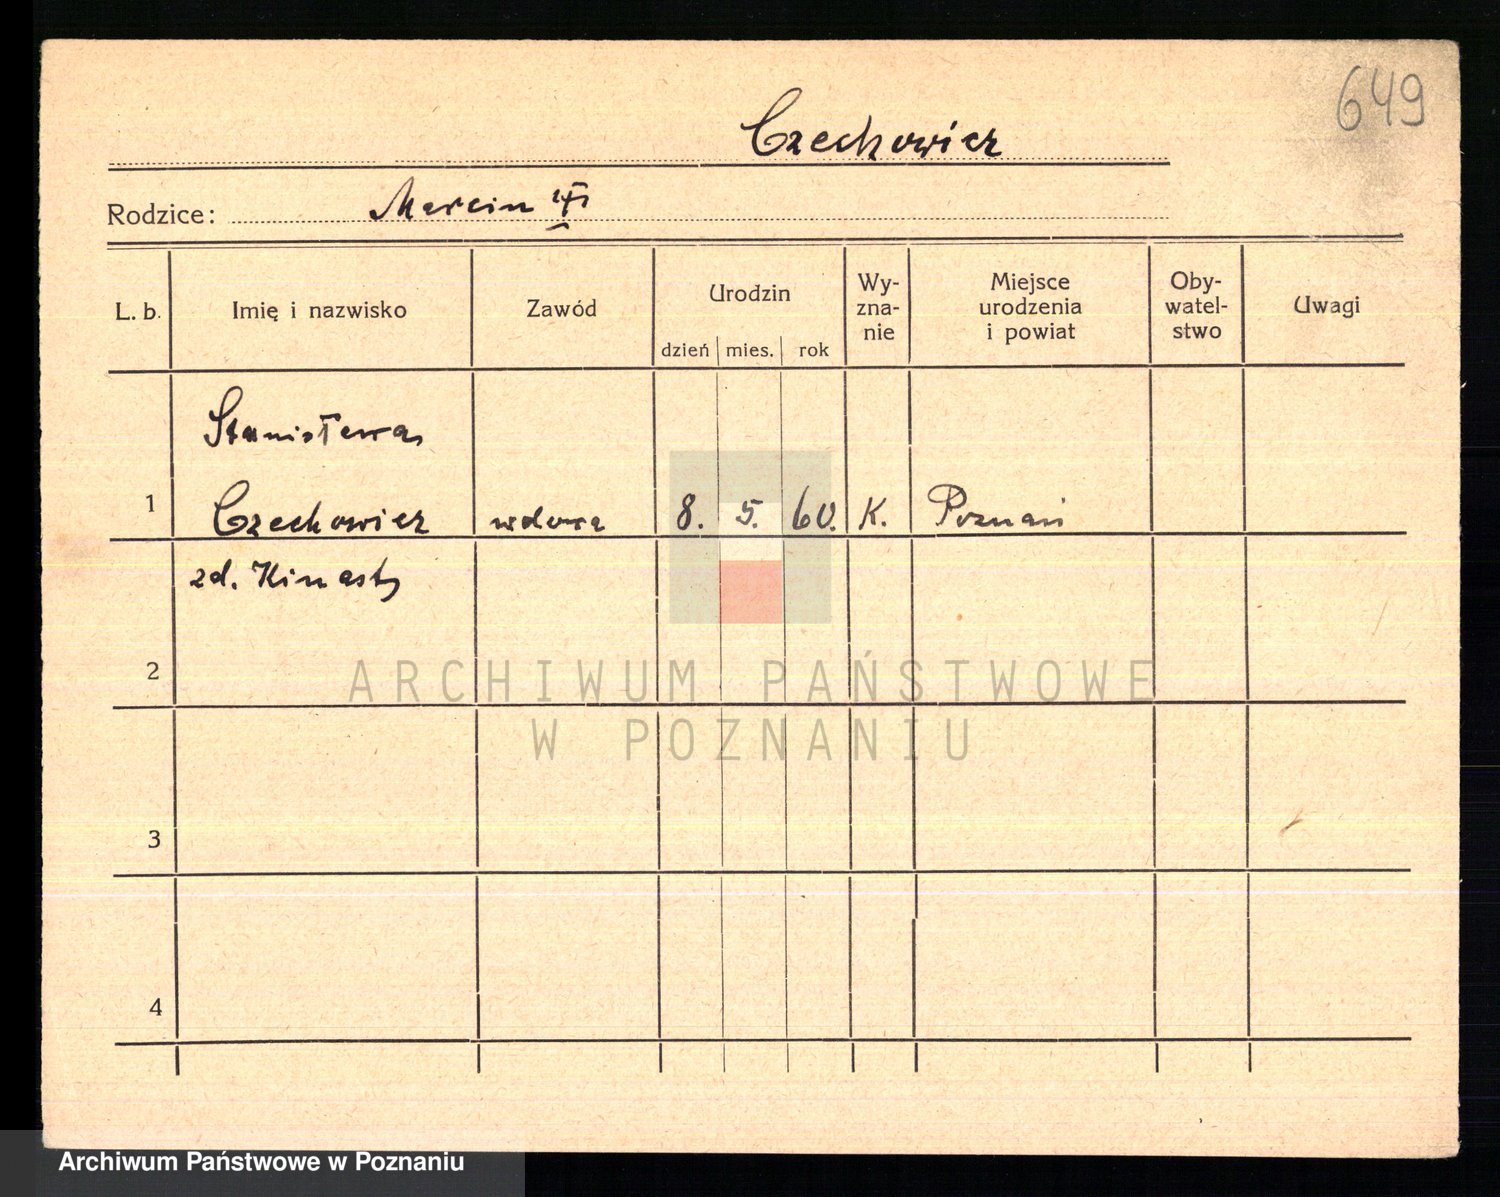 649
Czechowicz
Rodzice: Marcin
L. b. Imię i nazwisko Zawód Urodzin Wy-
zna-
nie Miejsce
urodzenia
i powiat Oby-
watel-
stwo Uwagi
dzień mies. rok
Stanisława
1 Czechowicz wdowa 8. 5. 60. K. Poznań
zd. Kinasty
2
3
4
ARCHIWUM PAŃSTWOWE
W POZNANIU
Archiwum Państwowe w Poznaniu